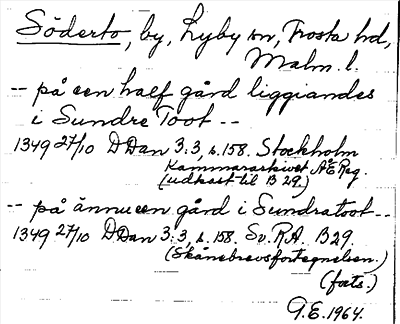 Söderto, by, Lyby sn, Frosta hd,
Malm. l.
-- på een half gård liggiandes
i Sundre Toot --
1349 27/10 DDan 3:3, s. 158. Stockholm
Kammararkivet ÅÆ Reg.
(udkast til B 29.)
-- på ännu een gård i Sundratoot --
1349 27/10 DDan 3:3, s. 158. Sv. R.A. B29.
(Skånebrevsfortegnelsen.)
(forts.)
G.E. 1964.